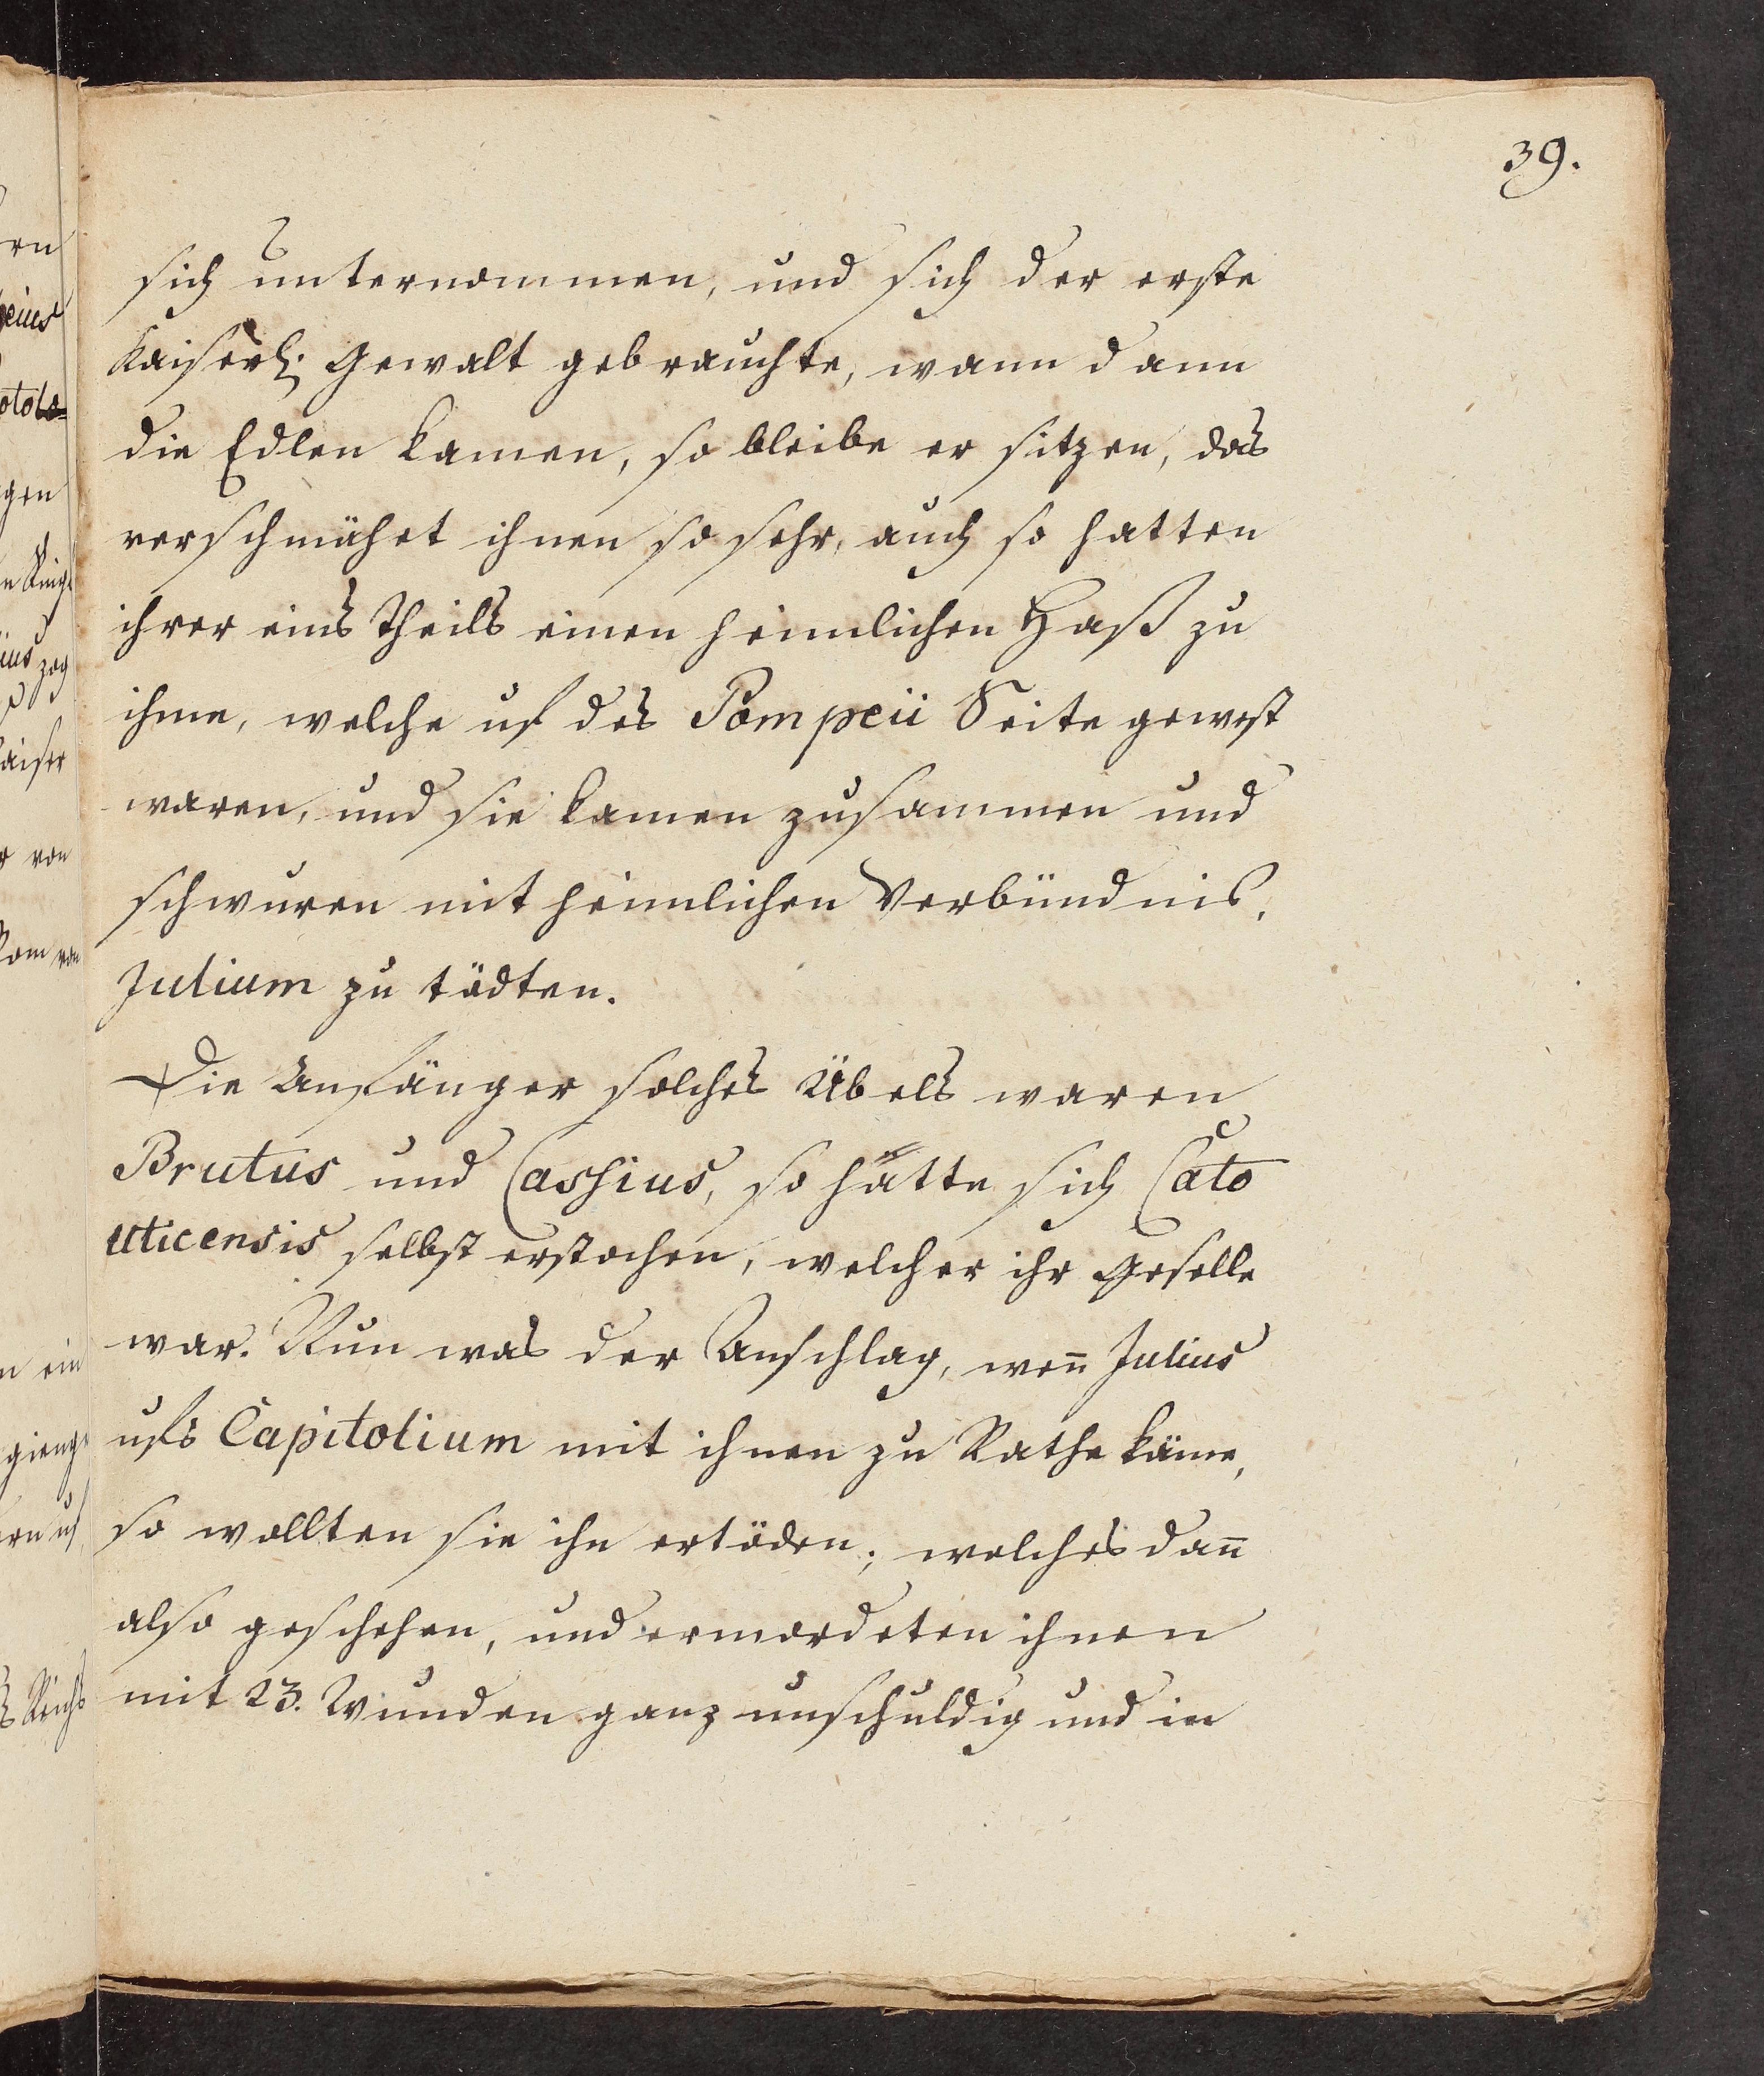 39.
sich unternommen, und sich der erste
Kaiserl. Gewalt gebrauchte, wann dann
die Edlen kamen, so bleibe er sitzen, das
verschmähet ihnen so sehr, auch so hatten
ihrer eins Theils einen heimlichen Haß zu
ihme, welche uf des Pompeii Seite gewest
waren, und sie kamen zusammen und
schwuren mit heimlichen Verbündnis,
Julium zu tödten.
Die Anfänger solches Übels waren
Brutus und Cassius, so hatte sich Cato
uticensis selbst erstochen, welcher ihr Geselle
war. Nun was der Anschlag, weñ Julius
ufs Capitolium mit ihnen zu Rathe käme,
so wollten sie ihn ertöden; welches dañ
also geschehen, und ermordeten ihnen
mit 23. Wunden ganz unschuldig und in